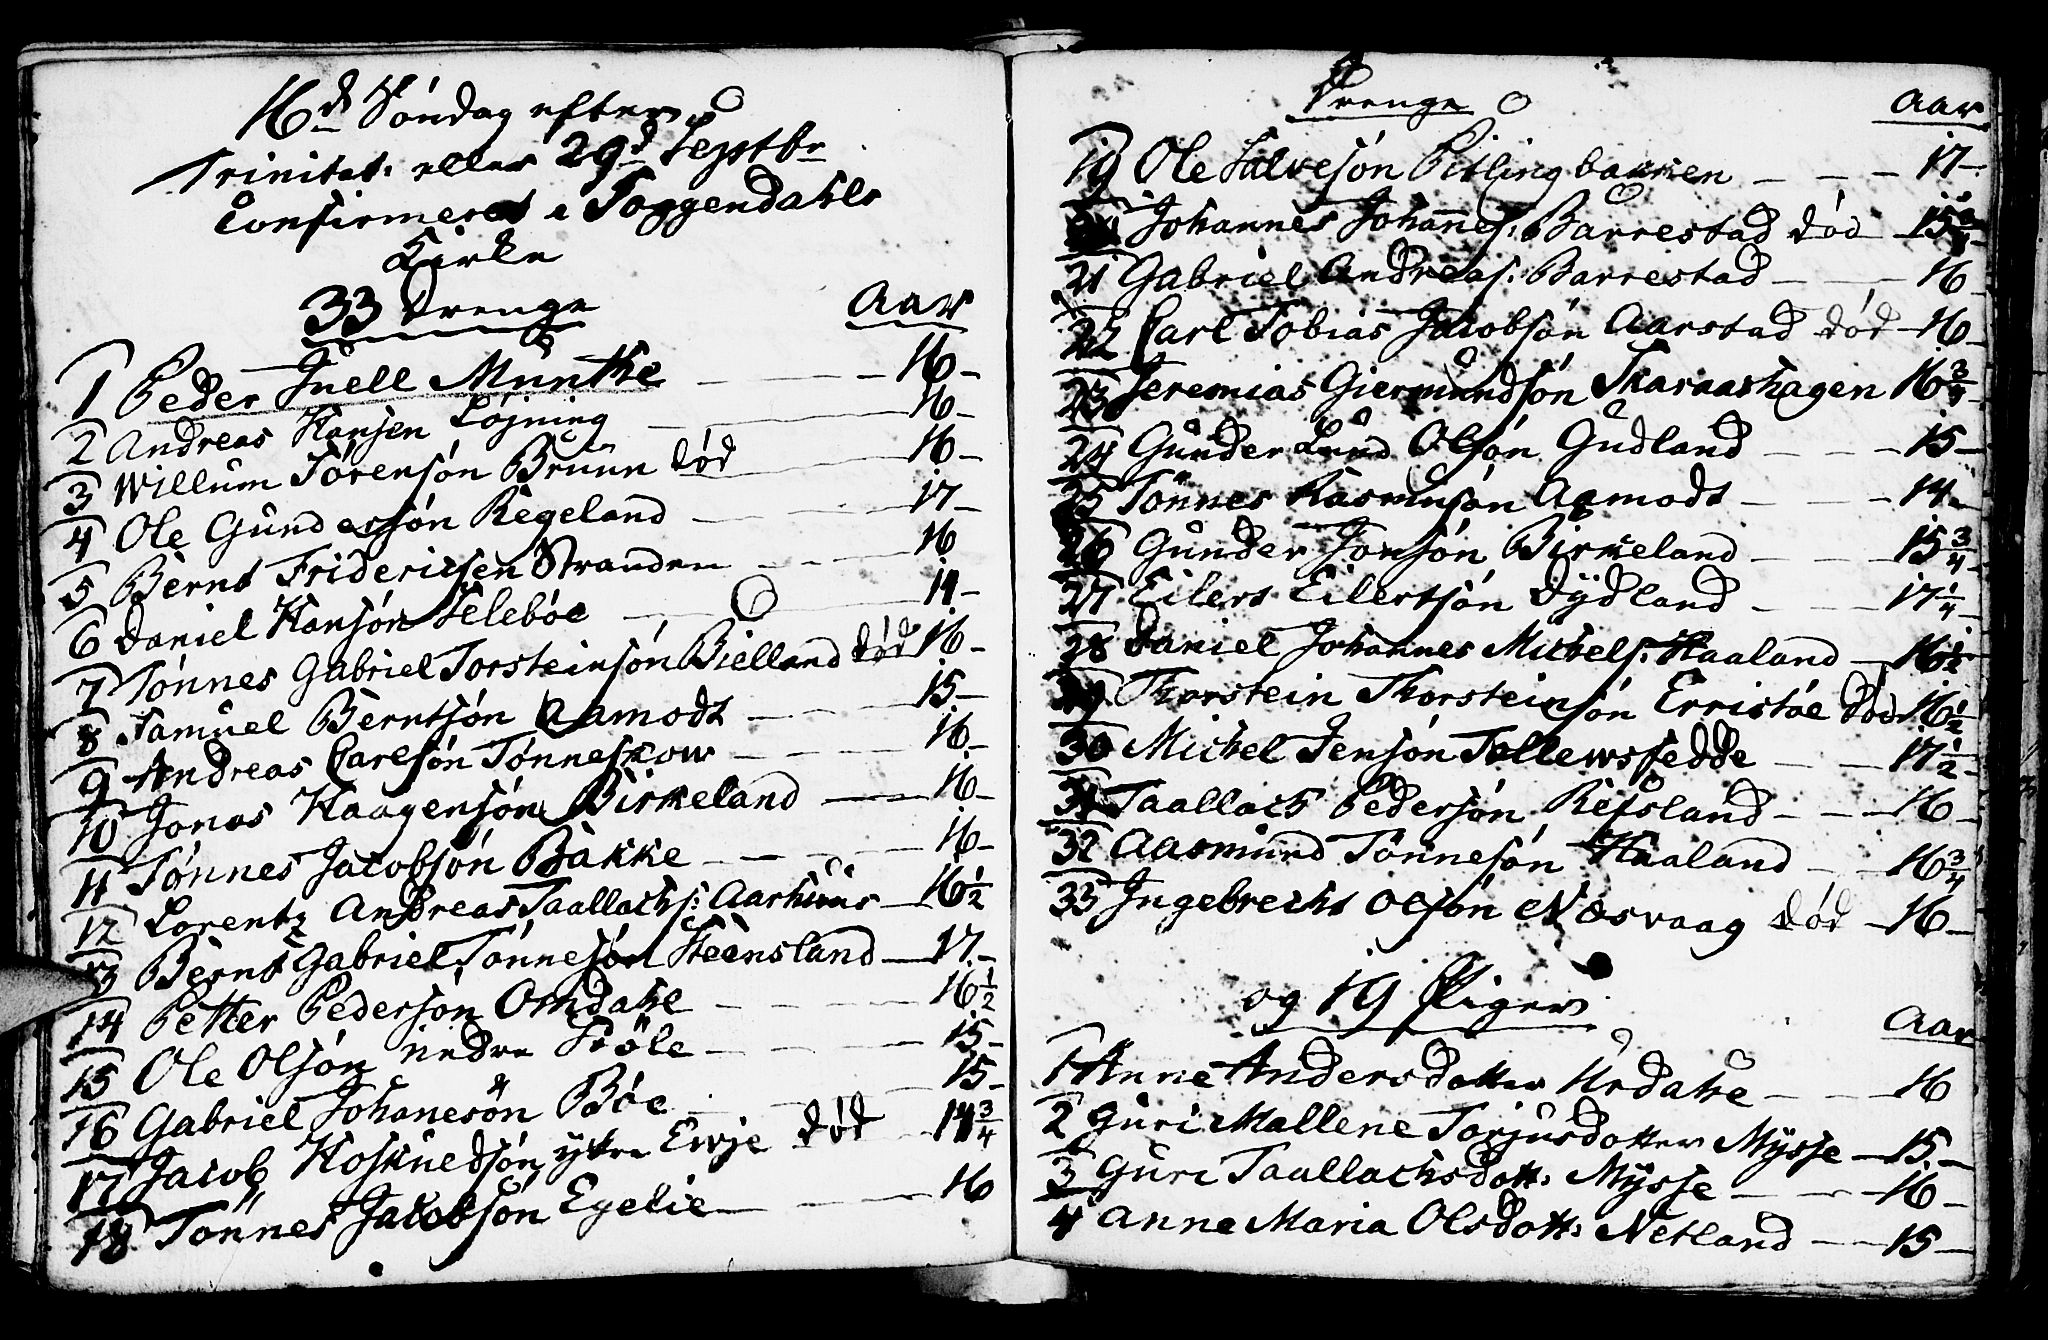 16d Søndag efter
Trinitat: eller 29d Septbr
Confirmeret i Soggendahls
Kirke
33 Drenge Aar
1 Peder Juell Munthe — — — 16 —
2 Andreas Hansen Løjning — 16 —
3 Willum Sørensøn Bruun død — 16 —
4 Ole Gundersøn Regeland — — 17 —
5 Bernt Fridericsen Stranden — — 16
6 Daniel Hansøn Selebøe — — 14 —
7 Tønnes Gabriel Torsteinsøn Bielland død 16 —
8 Samuel Berntsøn Aamodt — — 15 —
9 Andreas Carlsøn Tønneskow — — 16 —
10 Jonas Haagensøn Birkeland — 16 —
11 Tønnes Jacobsøn Bakke — — — 16 —
12 Lorentz Andreas Taallachs: Aarhuus — 16 1/2
13 Bernt Gabriel Tønnesøn Steensland — 17 —
14 Petter Pedersøn Omdahl — — — 16 1/2
15 Ole Olsøn nedre — — 15 —
16 Gabriel Johanesøn Bøe — — 15 —
17 Jacob Hoskuedsøn ytre Ewje død — 14 3/4
18 Tønnes Jacobsøn Egelie — — 16
Drenge Aar
19 Ole Salvesøn Pitlingbakken — — — 17 —
Johannes Johannes: Barrestad død — 15 3/4
21 Gabriel Andreas: Barrestad — — 16 —
22 Carl Tobias Jacobsøn Aarstad død — 16 —
23 Jeremias Giermundsøn Skaraashagen 16 3/4
24 Gunder Lund Olsøn Gudland — — — 15 —
25 Tønnes Rasmusøn Aamodt — — — 14 —
26 Gunder Jonsøn Birkeland — — — 15 3/4
27 Eilert Eilertsøn Dydland — — — 17 1/4
28 Daniel Johannes Michels: Haaland — 16 1/2
29 Thorstein Thorsteinsøn Erristøe død 16 1/2
30 Michel Jensøn Tollewsfedde — — 17 1/2
31 Taallach Pedersøn Refsland — — 16 —
32 Aasmund Tønnesøn Haaland — — 16 3/4
33 Ingebrecht Olsøn Næsvaag død — 16 —
og 19 Piger
Aar
1 Anne Andersdotter Urdahl — — 16
2 Guri Mallene Torjusdotter Mysse — 15 —
3 Guri Taallachsdott: Mysse — — 16 —
4 Anne Maria Olsdott: Netland — — 15 —